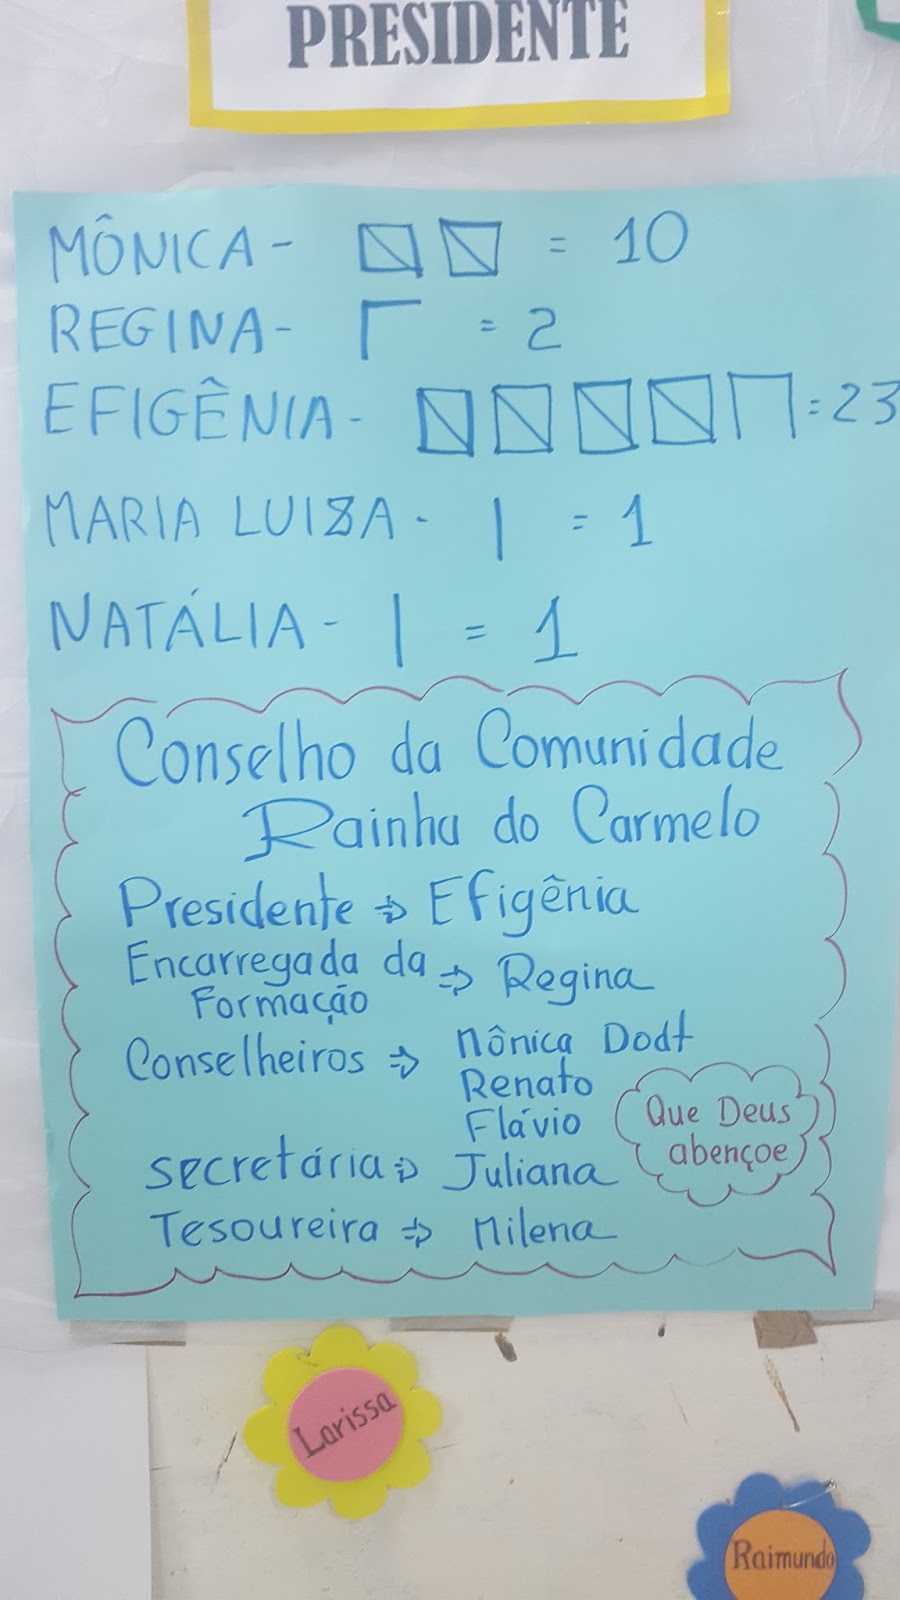 PRESIDENTE
MÔNICA - = 10
REGINA - = 2
EFIGÊNIA - = 23
MARIA LUIZA - | = 1
NATÁLIA - | = 1
Conselho da Comunidade
Rainha do Carmelo
Presidente ⇒ Efigênia
Encarregada da
Formação ⇒ Regina
Conselheiros ⇒ Mônica Dodt
Renato
Flávio
Que Deus
abençoe
Secretária ⇒ Juliana
Tesoureira ⇒ Milena
Larissa
Raimundo